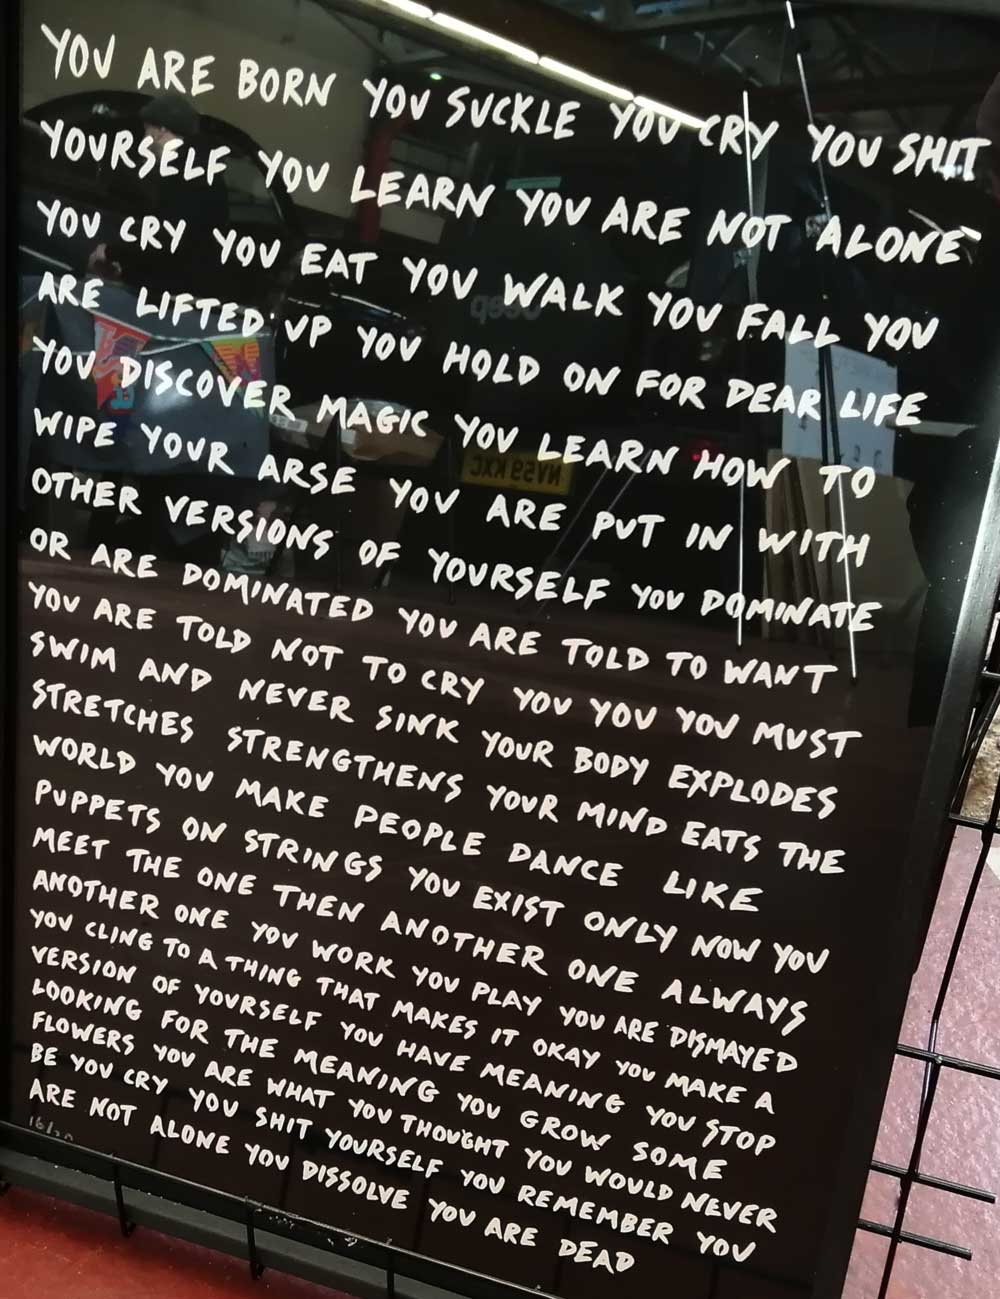 YOU ARE BORN YOU SUCKLE YOU CRY YOU SHIT
YOURSELF YOU LEARN YOU ARE NOT ALONE
YOU CRY YOU EAT YOU WALK YOU FALL YOU
ARE LIFTED UP YOU HOLD ON FOR DEAR LIFE
YOU DISCOVER MAGIC YOU LEARN HOW TO
WIPE YOUR ARSE YOU ARE PUT IN WITH
OTHER VERSIONS OF YOURSELF YOU DOMINATE
OR ARE DOMINATED YOU ARE TOLD TO WANT
YOU ARE TOLD NOT TO CRY YOU YOU YOU MUST
SWIM AND NEVER SINK YOUR BODY EXPLODES
STRETCHES STRENGTHENS YOUR MIND EATS THE
WORLD YOU MAKE PEOPLE DANCE LIKE
PUPPETS ON STRINGS YOU EXIST ONLY NOW YOU
MEET THE ONE THEN ANOTHER ONE ALWAYS
ANOTHER ONE YOU WORK YOU PLAY YOU ARE DISMAYED
YOU CLING TO A THING THAT MAKES IT OKAY YOU MAKE A
VERSION OF YOURSELF YOU HAVE MEANING YOU STOP
LOOKING FOR THE MEANING YOU GROW SOME
FLOWERS YOU ARE WHAT YOU THOUGHT YOU WOULD NEVER
BE YOU CRY YOU SHIT YOURSELF YOU REMEMBER YOU
ARE NOT ALONE YOU DISSOLVE YOU ARE DEAD
Jeep
NV59 KXC